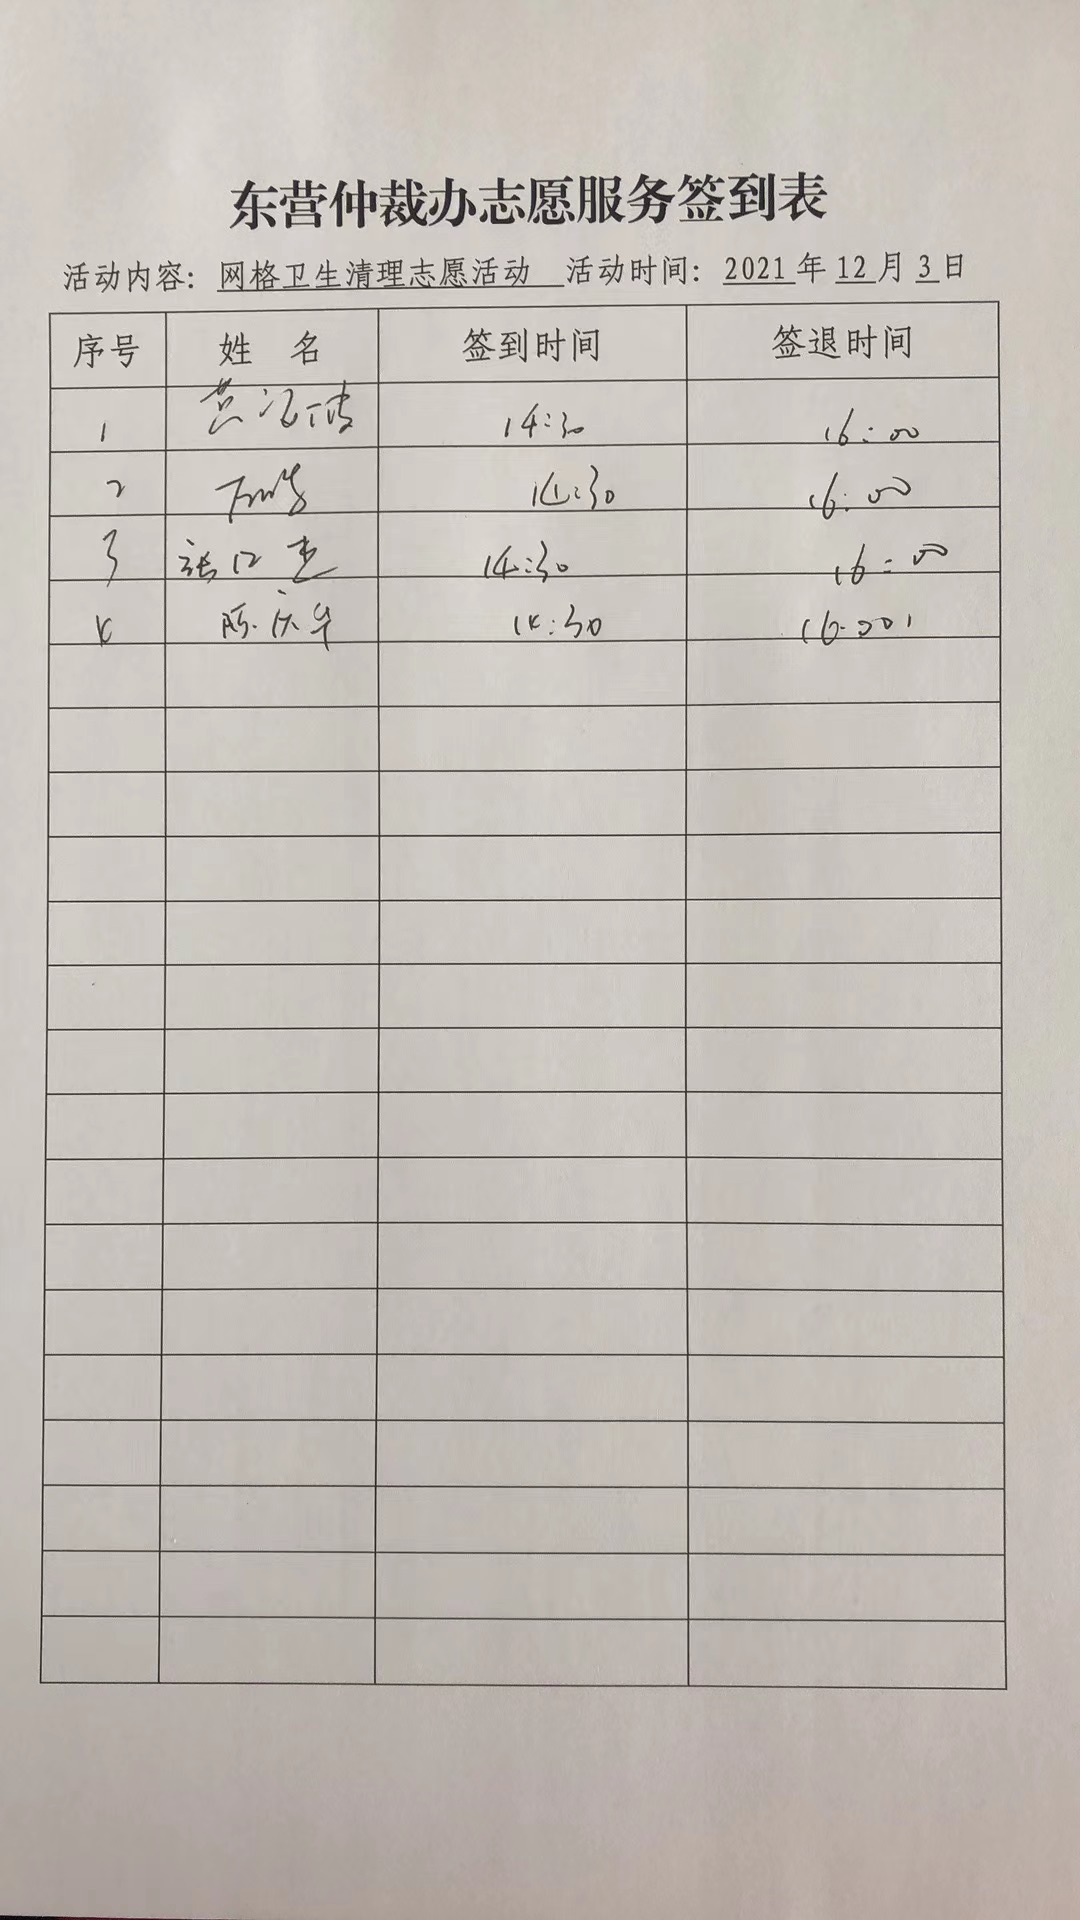 东营仲裁办志愿服务签到表
活动内容：网格卫生清理志愿活动 活动时间：2021年12月3日
序号 姓名 签到时间 签退时间
1 黄 14:30 16:00
2 14:30 16:00
3 张 14:30 16:00
4 陈庆华 14:30 16:00